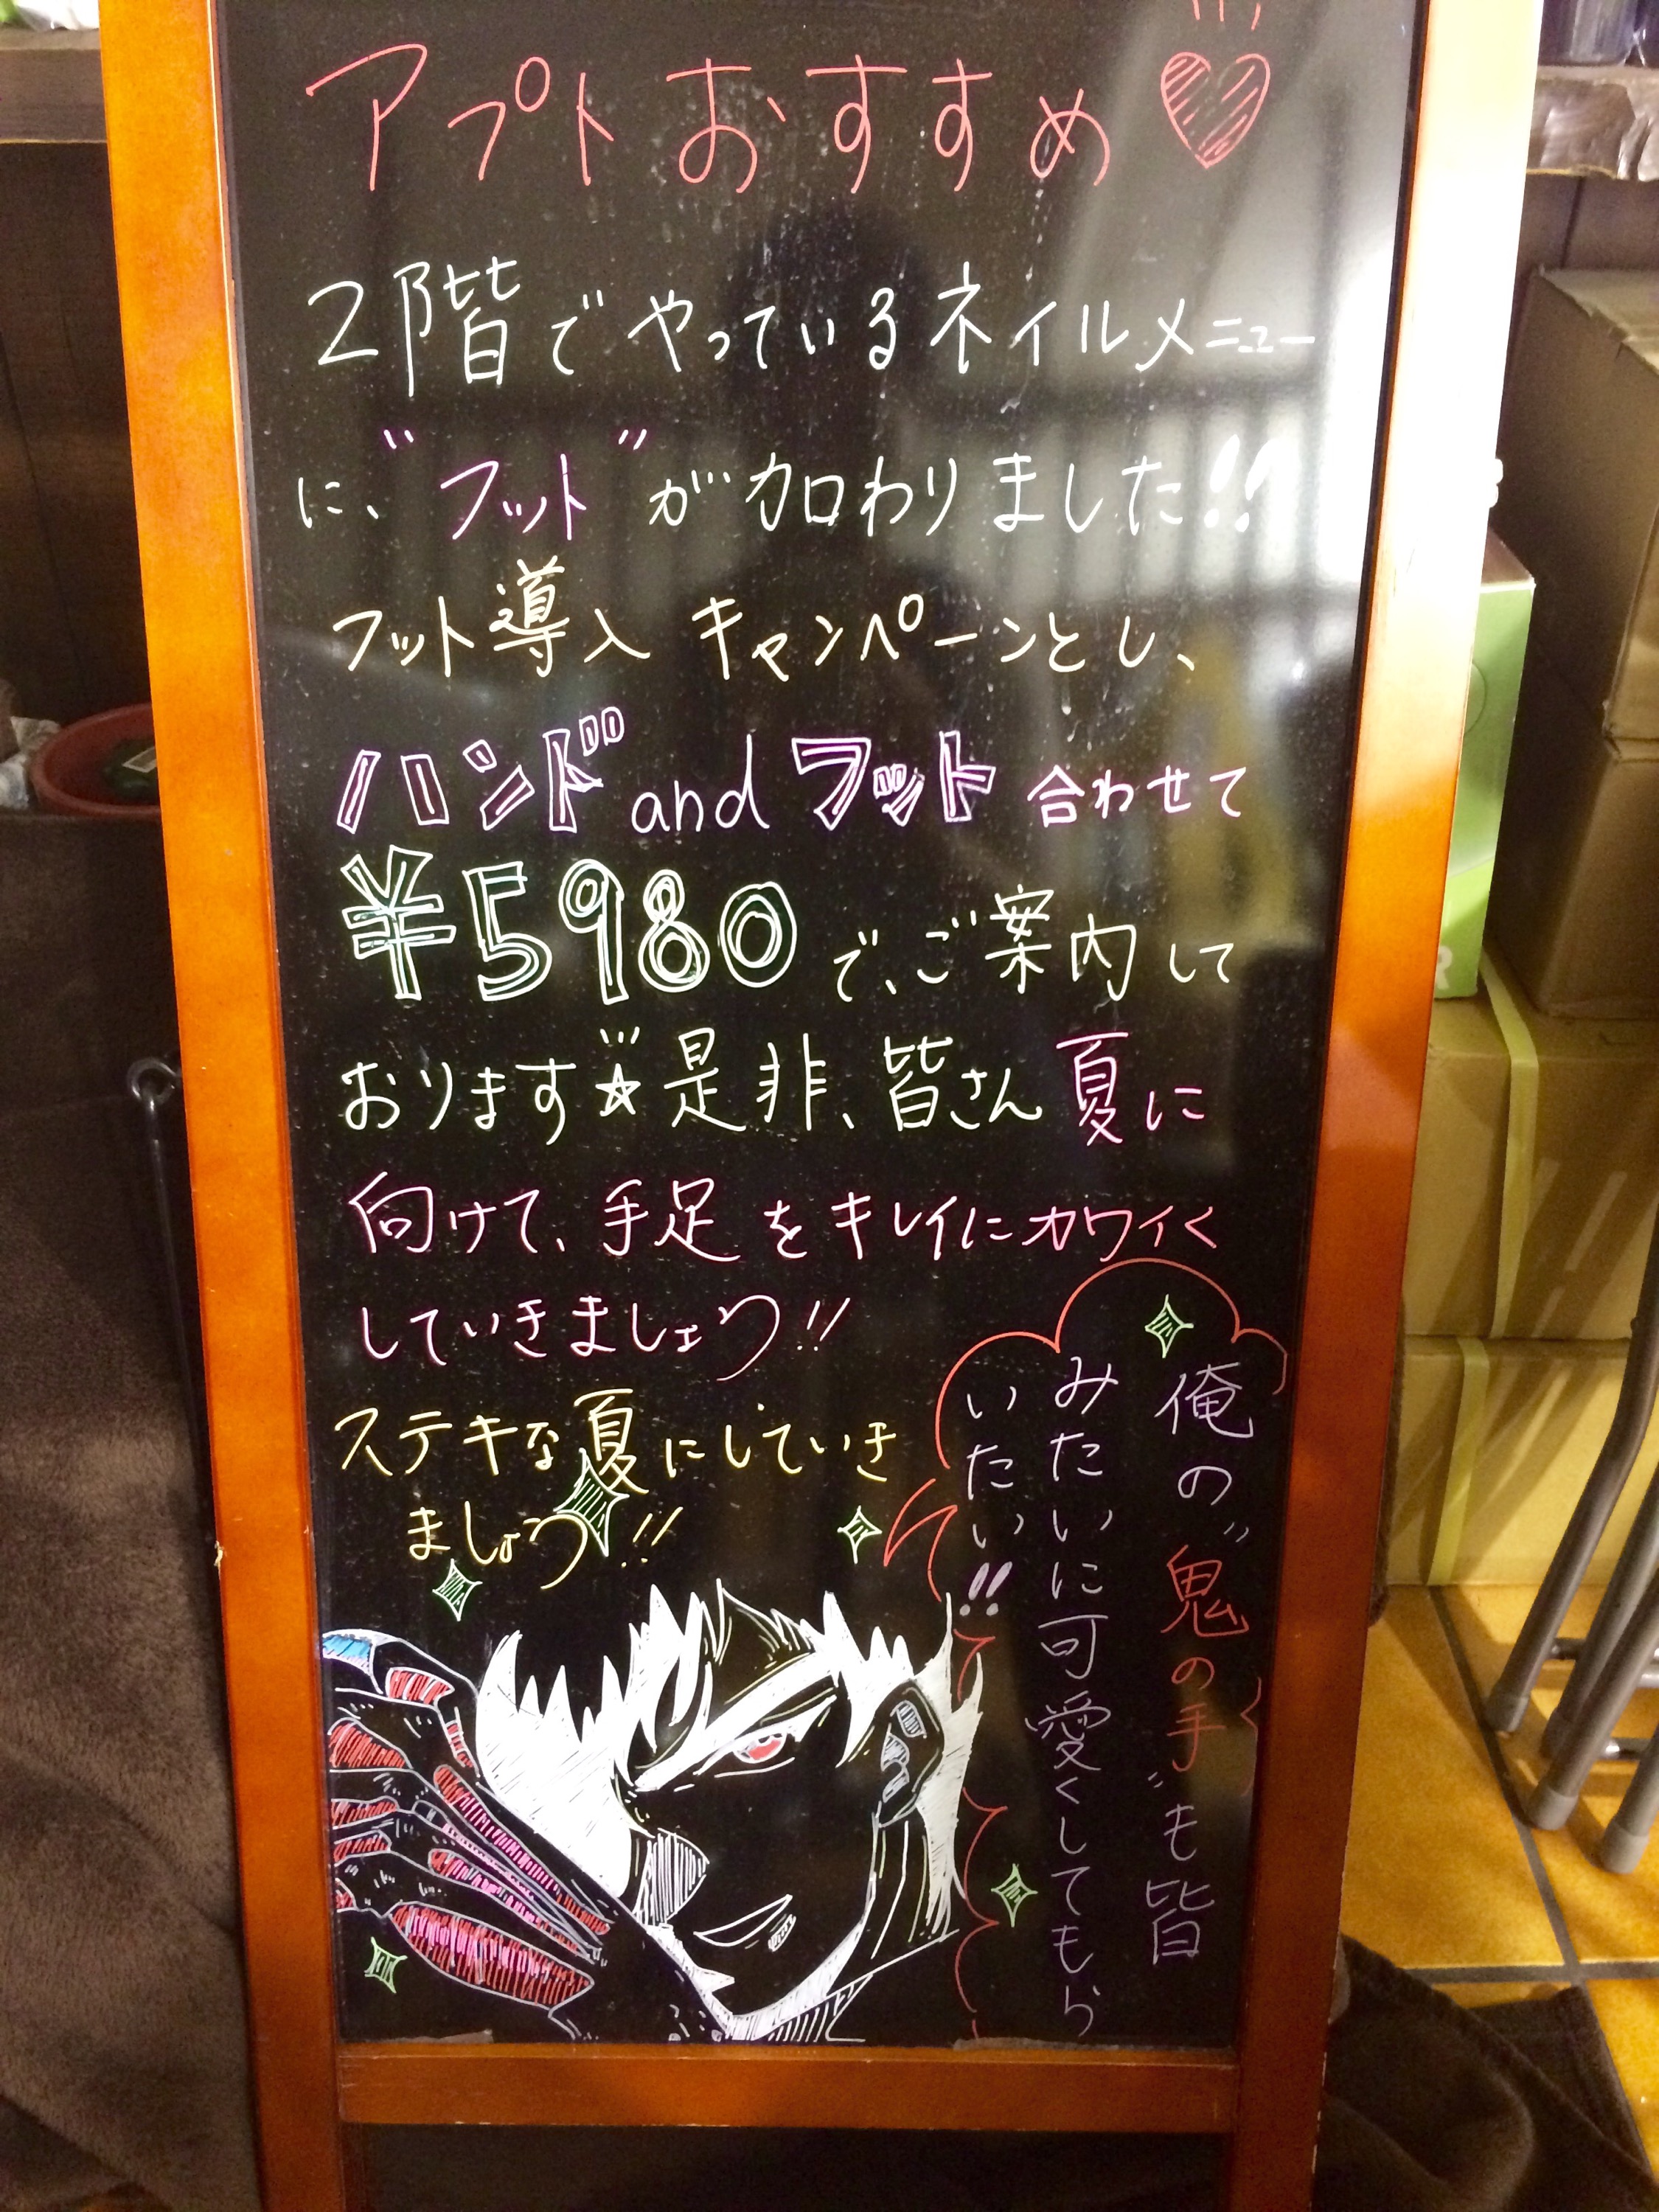 アプトおすすめ♡
2階でやっているネイルメニュー
に、"フット"が加わりました!!
フット導入キャンペーンとし、
ハンドandフット合わせて
¥5980で、ご案内して
おります☆是非、皆さん夏に
向けて、手足をキレイにカワイく
していきましょう!!
ステキな夏にしていき
ましょう!!
俺の"鬼の手"も皆
みたいに可愛くしてもら
いたい!!